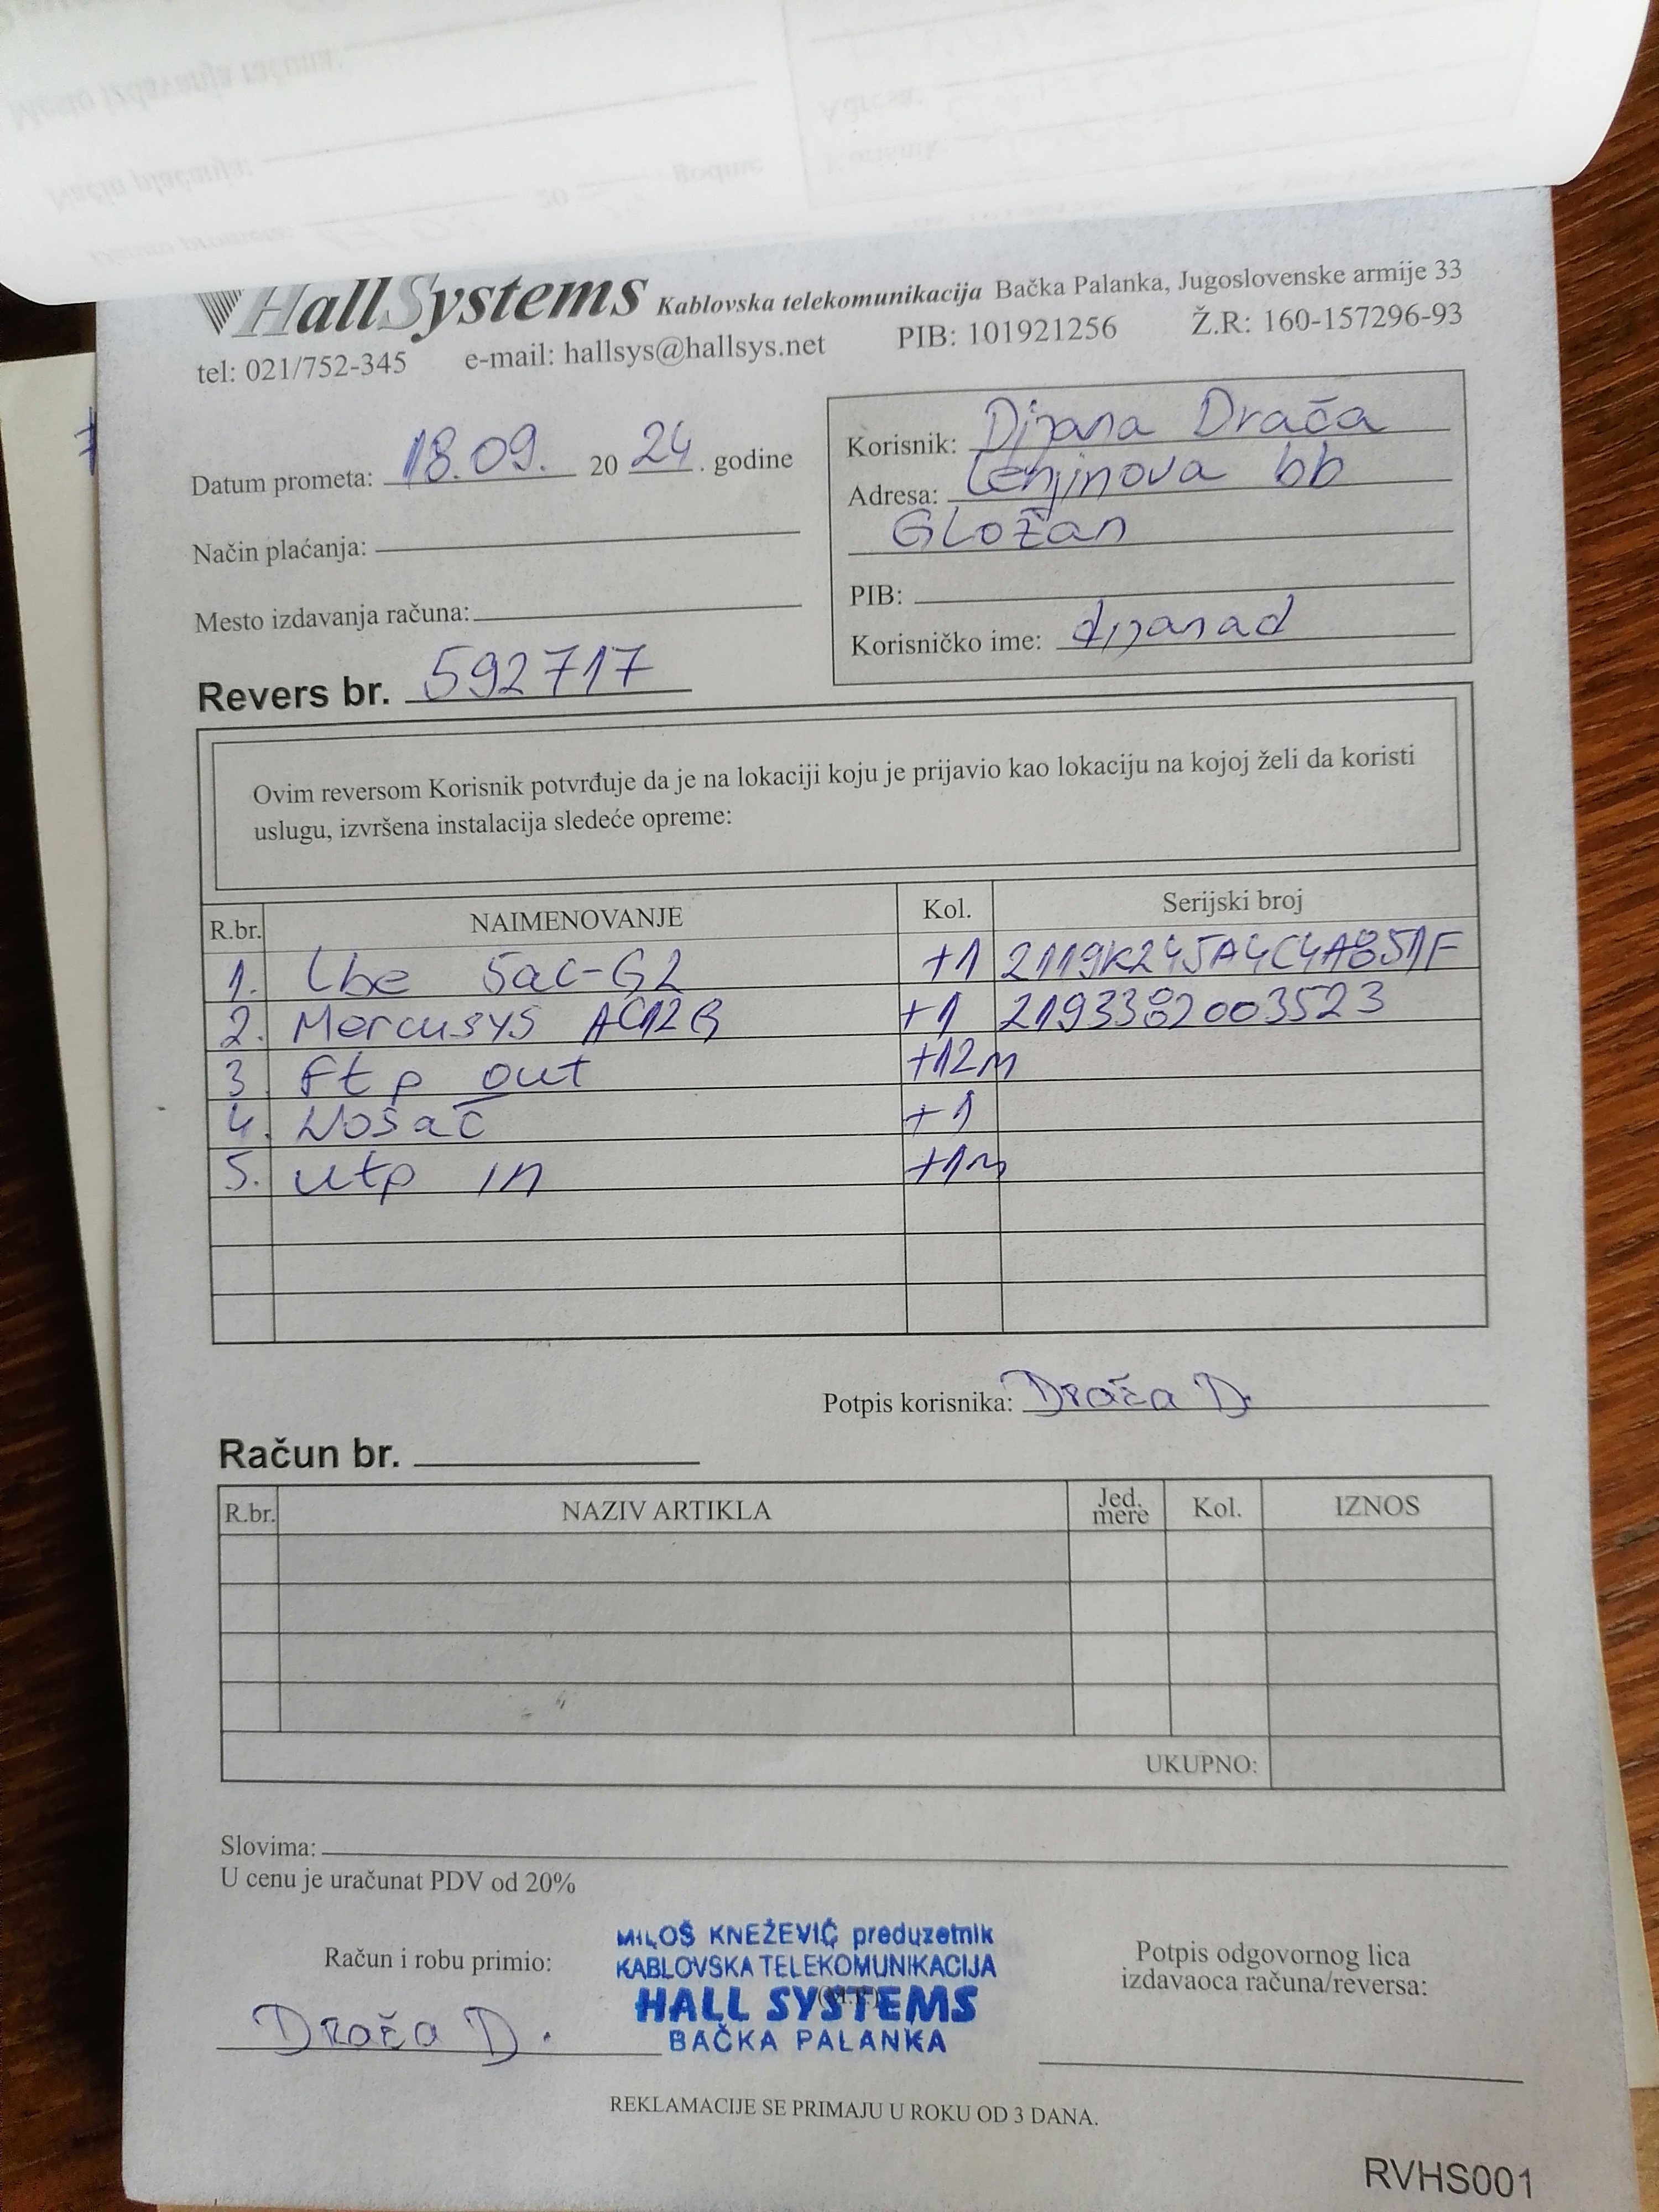 HallSystems Kablovska telekomunikacija Bačka Palanka, Jugoslovenske armije 33
tel: 021/752-345 e-mail: hallsys@hallsys.net PIB: 101921256 Ž.R: 160-157296-93
Datum prometa: 18.09. 20 24. godine
Način plaćanja:
Mesto izdavanja računa:
Revers br. 592717
Korisnik: Dijana Drača
Adresa: Lenjinova bb
Gložan
PIB:
Korisničko ime: dijanad
Ovim reversom Korisnik potvrđuje da je na lokaciji koju je prijavio kao lokaciju na kojoj želi da koristi
uslugu, izvršena instalacija sledeće opreme:
R.br. NAIMENOVANJE Kol. Serijski broj
1. Lbe 5ac-G2 +1 2119K245A4C4AB51F
2. Mercusys AC12G +1 2193382003523
3. Ftp out +12m
4. Nosač +1
5. utp in +1m
Potpis korisnika: Drača D.
Račun br.
R.br. NAZIV ARTIKLA Jed. mere Kol. IZNOS
UKUPNO:
Slovima:
U cenu je uračunat PDV od 20%
Račun i robu primio:
Drača D.
MILOŠ KNEŽEVIĆ preduzetnik
KABLOVSKA TELEKOMUNIKACIJA
HALL SYSTEMS
BAČKA PALANKA
Potpis odgovornog lica
izdavaoca računa/reversa:
REKLAMACIJE SE PRIMAJU U ROKU OD 3 DANA.
RVHS001